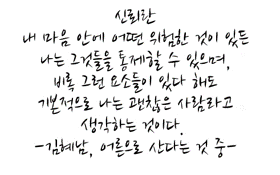 신뢰란
내 마음 안에 어떤 위험한 것이 있든
나는 그것들을 통제할 수 있으며,
비록 그런 요소들이 있다 해도
기본적으로 나는 괜찮은 사람라고
생각하는 것이다.
-김혜남, 어른으로 산다는 것 중-